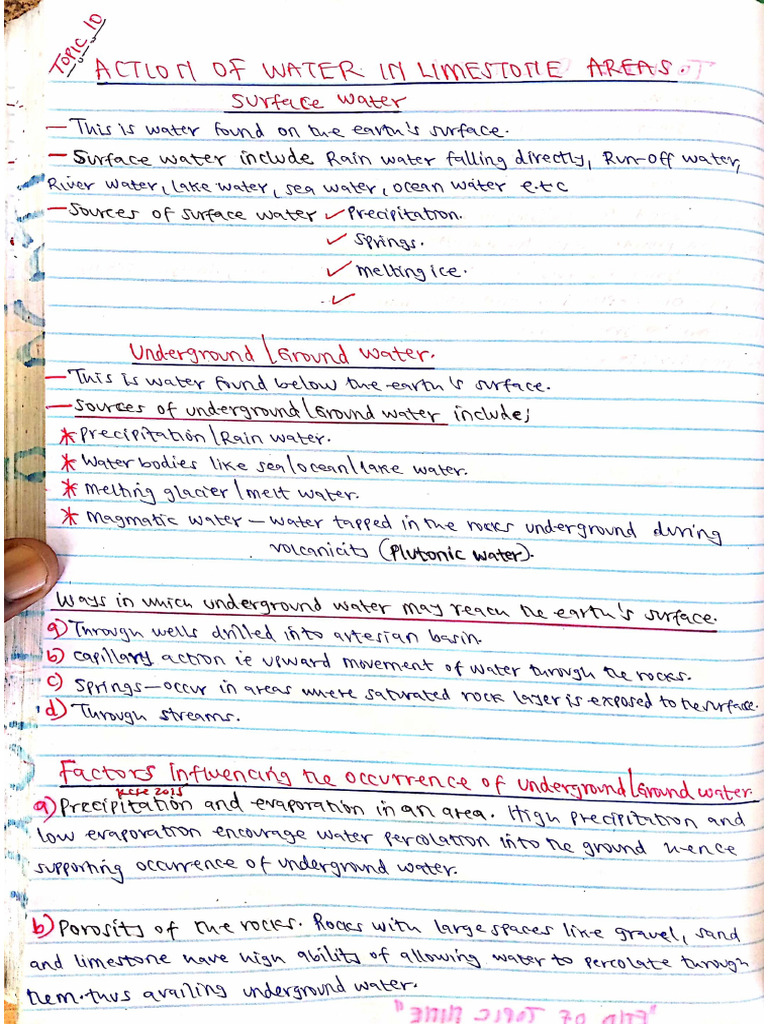 TOPIC 10
ACTION OF WATER IN LIMESTONE AREAS.
Surface water
- This is water found on the earth's surface.
- Surface water include Rain water falling directly, Run-off water,
River water, lake water, sea water, ocean water e.t.c
- Sources of surface water ✓ Precipitation.
✓ Springs.
✓ Melting ice.
✓
Underground/Ground water.
- This is water found below the earth's surface.
- Sources of underground/Ground water include;
* Precipitation/Rain water.
* Water bodies like sea/ocean/lake water.
* Melting glacier/melt water.
* Magmatic water - water tapped in the rocks underground during
volcanicity (Plutonic water).
Ways in which underground water may reach the earth's surface.
a) Through wells drilled into artesian basin.
b) Capillary action ie upward movement of water through the rocks.
c) Springs - occur in areas where saturated rock layer is exposed to the surface.
d) Through streams.
Factors influencing the occurrence of underground/Ground water.
KCSE 2015
a) Precipitation and evaporation in an area. High precipitation and
low evaporation encourage water percolation into the ground hence
supporting occurrence of underground water.
b) Porosity of the rocks. Rocks with large spaces like gravel, sand
and limestone have high ability of allowing water to percolate through
them. thus availing underground water.
"END OF TOPIC NINE"